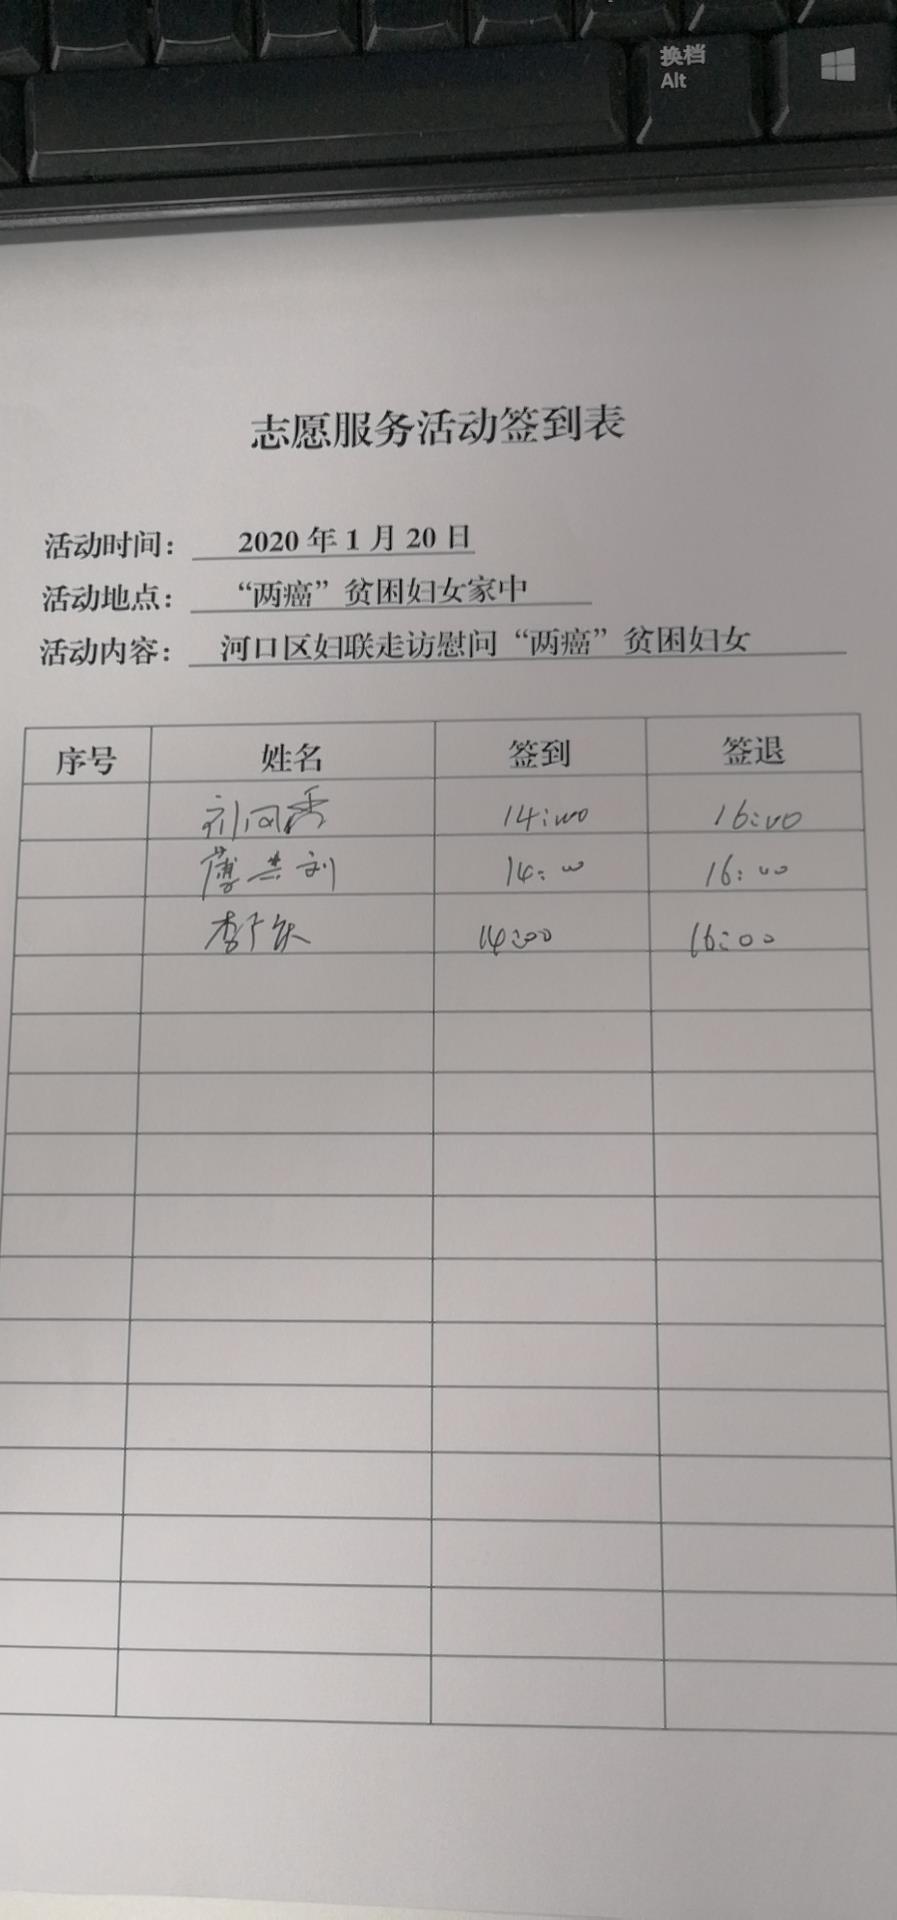 换档
Alt
志愿服务活动签到表
活动时间： 2020年1月20日
活动地点： “两癌”贫困妇女家中
活动内容： 河口区妇联走访慰问“两癌”贫困妇女
序号 姓名 签到 签退
14:00 16:00
14:00 16:00
14:00 16:00